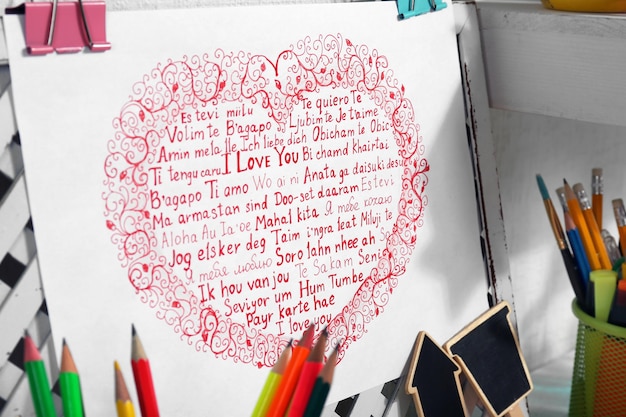 Te quiero Te
Es tevi milu
Ljubim te Je t'aime
Volim te B'agapo
Ich liebe dich Obicham te Obic
Amin mela
I Love You Bi chand khairtai
Ti tengu caru
Anata ga daisuki desu
B'agapo Ti amo Wo ai ni
Doo-set daaram Es tevi
Ma armastan sind
Mahal kita Я тебе кохаю
Aloha Au Ia 'oe
Ta im i'ngra feat Miluji te
Jog elsker deg
Soro lahn nhee ah
тебя люблю Te Sakam
Ik hou van jou
Hum Tumbe
Seviyor um
Payr karte hae
I love you